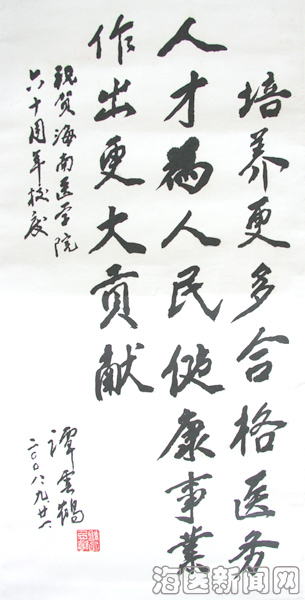 培养更多合格医务
人才为人民健康事业
作出更大贡献
祝贺海南医学院
六十周年校庆
谭云鹤
二〇〇八、九、廿一
海医新闻网